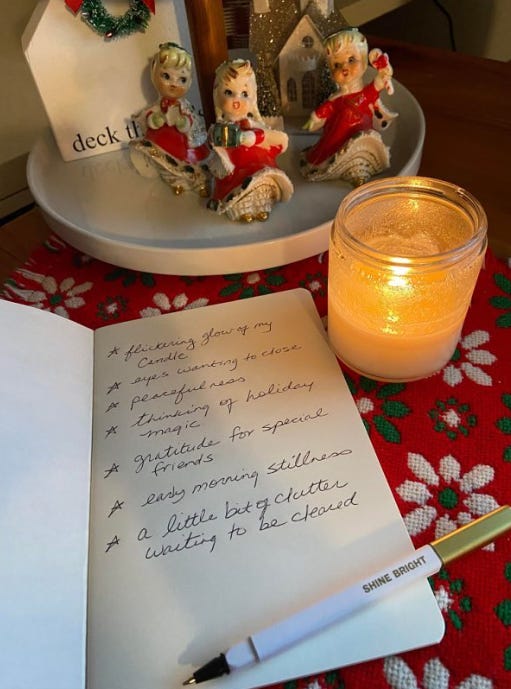 deck th
☆ flickering glow of my
candle
☆ eyes wanting to close
☆ peacefulness
☆ thinking of holiday
magic
☆ gratitude for special
friends
☆ early morning stillness
☆ a little bit of clutter
waiting to be cleared
SHINE BRIGHT